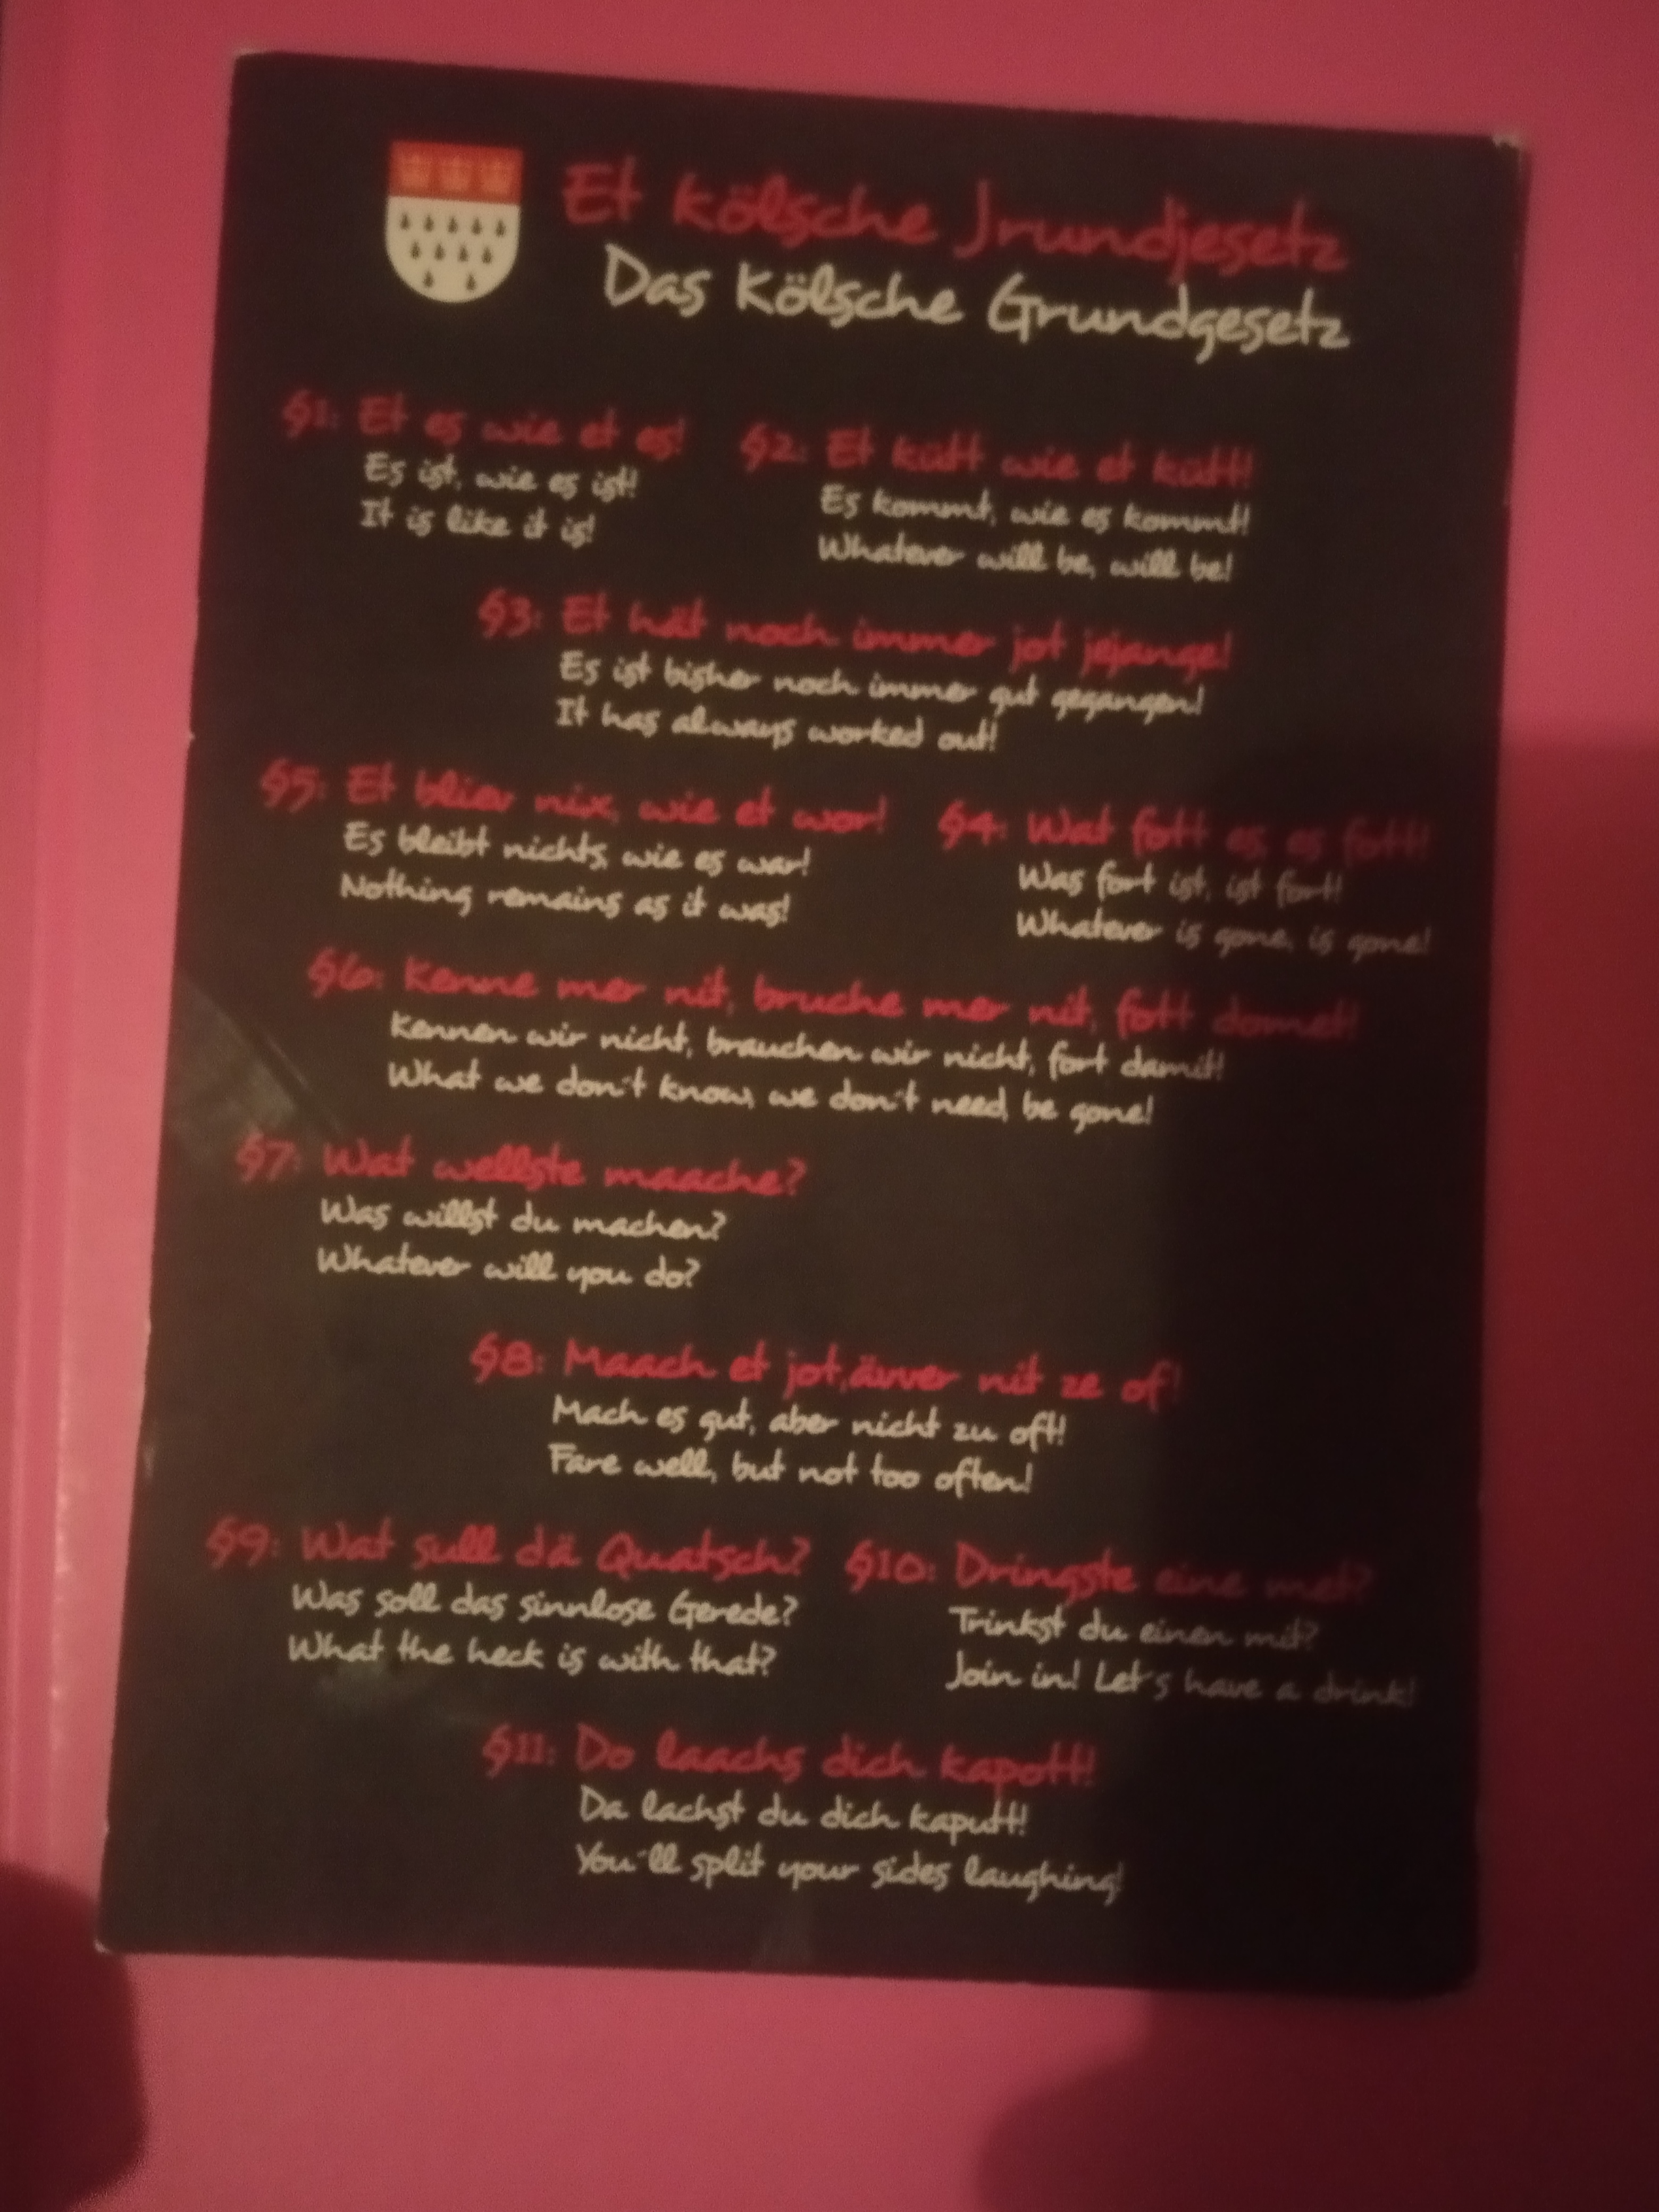 Et kölsche Jrundjesetz
Das Kölsche Grundgesetz
§1: Et es wie et es!
Es ist, wie es ist!
It is like it is!
§2: Et kütt wie et kütt!
Es kommt, wie es kommt!
Whatever will be, will be!
§3: Et hät noch immer jot jejange!
Es ist bisher noch immer gut gegangen!
It has always worked out!
§5: Et bliev nix, wie et wor!
Es bleibt nichts, wie es war!
Nothing remains as it was!
§4: Wat fott es, es fott!
Was fort ist, ist fort!
Whatever is gone, is gone!
§6: Kenne mer nit, bruche mer nit, fott domet!
Kennen wir nicht, brauchen wir nicht, fort damit!
What we don't know, we don't need, be gone!
§7: Wat wellste maache?
Was willst du machen?
Whatever will you do?
§8: Maach et jot, ävver nit ze of!
Mach es gut, aber nicht zu oft!
Fare well, but not too often!
§9: Wat sull dä Quatsch?
Was soll das sinnlose Gerede?
What the heck is with that?
§10: Dringste eine met?
Trinkst du einen mit?
Join in! Let's have a drink!
§11: Do laachs dich kapott!
Da lachst du dich kaputt!
You'll split your sides laughing!